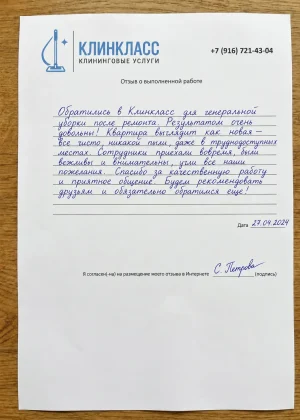 КЛИНКЛАСС
КЛИНИНГОВЫЕ УСЛУГИ
+7 (916) 721-43-04
Отзыв о выполненной работе
Обратились в Клинкласс для генеральной
уборки после ремонта. Результатом очень
довольны! Квартира выглядит как новая –
все чисто, никакой пыли, даже в труднодоступных
местах. Сотрудники приехали вовремя, были
вежливы и внимательны, учли все наши
пожелания. Спасибо за качественную работу
и приятное общение. Будем рекомендовать
друзьям и обязательно обратимся еще!
Дата 27.04.2024
Я согласен(-на) на размещение моего отзыва в Интернете С. Петрова (подпись)